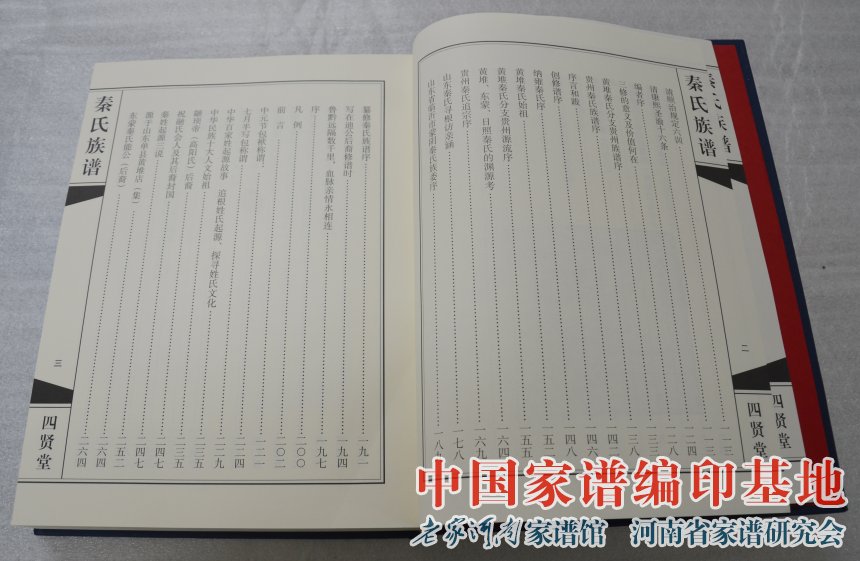 秦氏族谱
秦氏族谱
二
四贤堂
四贤堂
清顺治规定六训
清康熙圣谕十六条
编者序
三修的意义及价值何在
黄堆秦氏分支贵州族谱序
贵州秦氏族谱序
序言和跋
创修谱序
纳雍秦氏序
黄堆秦氏始祖
黄堆秦氏分支贵州源流序
黄堆、东蒙、日照秦氏的渊源考
贵州秦氏追宗序
山东秦氏寻根访亲涵
山东省临沂市蒙阴秦氏族委序
一八九
纂修秦氏族谱序 一九一
写在迪公后裔修谱时 一九四
鲁黔远隔数千里，血脉亲情永相连 一九七
序
凡例 二〇〇
前言 二〇二
中元节包袱称谓
七月半写包称谓 二二四
中华百家姓起源故事 追根姓氏起源、探寻姓氏文化 二二九
中华民族十大人文始祖
颛顼帝（高阳氏）后裔 二三五
祝融氏会人及其后裔封国 二三五
秦姓起源三说 二四七
源于山东单县黄堆店（集） 二四七
东蒙秦氏能公（后裔） 二五二
二六四
二六四
秦氏族谱
三
四贤堂
中国家谱编印基地
老家河南家谱馆 河南省家谱研究会